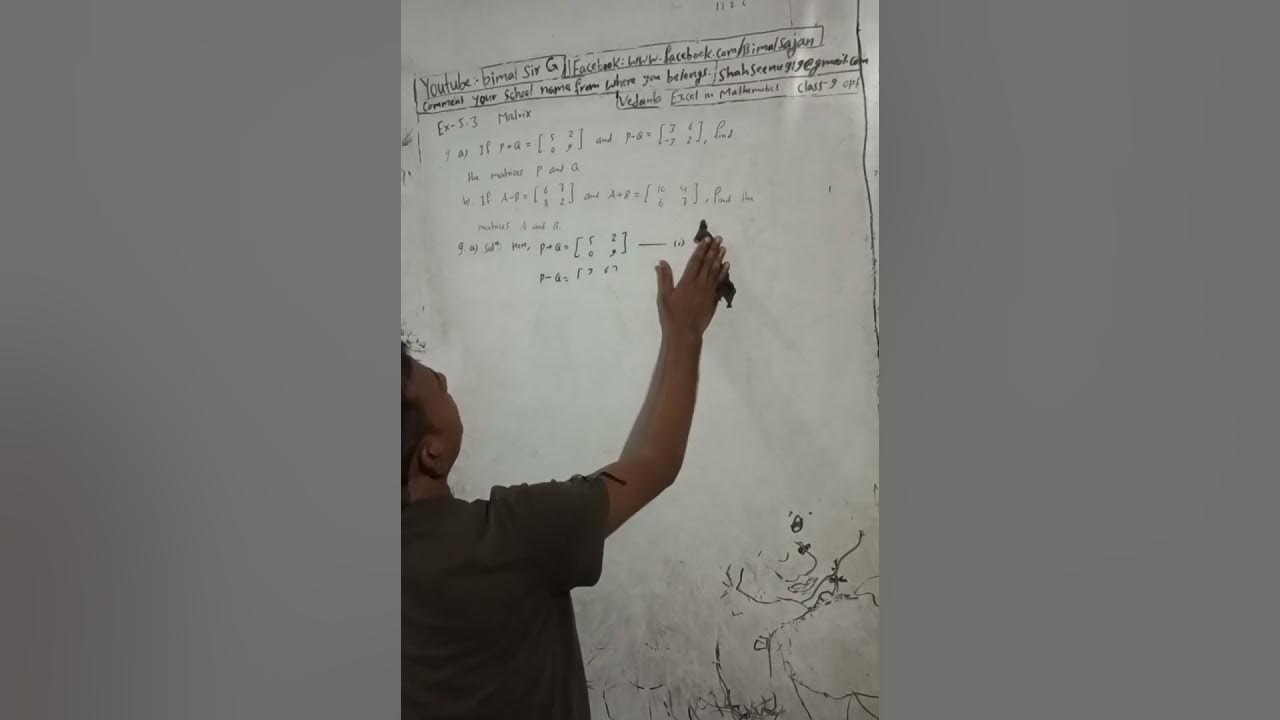 Youtube:- bimal sir G Facebook: www.facebook.com/Bimalsajan
Comment your school name from where you belongs. shahseenu919@gmail.com
Vedanta Excel in Mathematics class-9 opt
Ex-5.3 Matrix
9 a) If P+Q = [5 2
0 9] and P-Q = [3 6
-3 2], find
the matrices P and Q
b) If A-B = [6 3
8 2] and A+B = [10 4
6 7], find the
matrices A and B.
9. a) Solⁿ: Here, P+Q = [5 2
0 9] —— (i)
P-Q = [3 6]